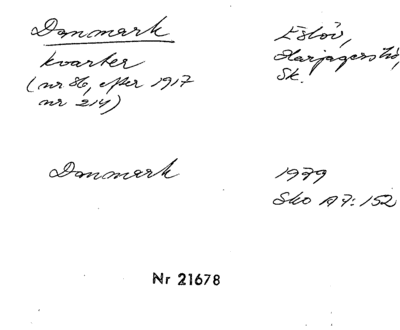 Danmark
kvarter
(nr 86, efter 1917
nr 214)
Eslöv,
Harjagers hd,
Sk.
Danmark
1979
Sko A7:152
Nr 21678